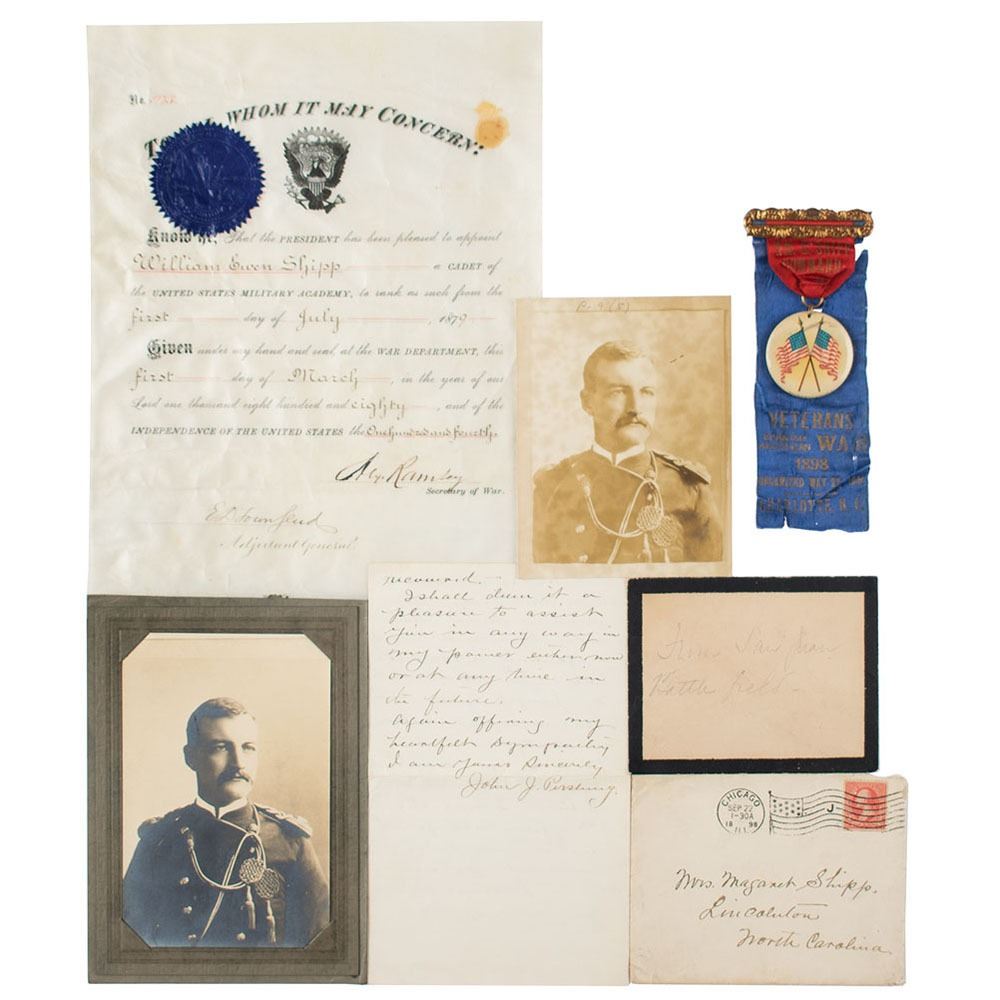 No.
WHOM IT MAY CONCERN:
Know ye, That the PRESIDENT has been pleased to appoint
William Ewen Shipp a CADET of
the UNITED STATES MILITARY ACADEMY, to rank as such from the
first day of July, 1879
Given under my hand and seal, at the WAR DEPARTMENT, this
first day of March, in the year of our
Lord one thousand eight hundred and eighty, and of the
INDEPENDENCE OF THE UNITED STATES the One hundred and fourth.
Alex Ramsey
Secretary of War.
E D Townsend
Adjutant General.
COMMAND
VETERANS
WAR
1898
ORGANIZED MAY
CHARLOTTE, N.C.
I shall deem it a
pleasure to assist
you in any way in
my power either now
or at any time in
the future.
Again offering my
heartfelt sympathy
I am Yours Sincerely
John J. Pershing.
From San Juan
Battle field.
CHICAGO
SEP 22
1-30A
1898
ILL.
J
Mrs. Magaret Shipp.
Lincolnton
North Carolina